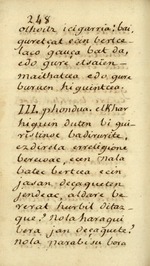 248
othoitz icigarria: bai,
guretçat ecin bertce-
laco gauça bat da,
edo gure elsaien-
maithatcea edo gure
buruen higuintcea.
III. phondua. elkhar
higuin duten bi gui-
ristinoz badirurite,
ez direla erreligione
berecoac, ecen nola
batec bertcea ecin
jasan deçaqueten
jendeac, aldare be-
rerat hurbil ditaz-
que? nola haragui
bera jan deçaquete?
nola parabisu bera